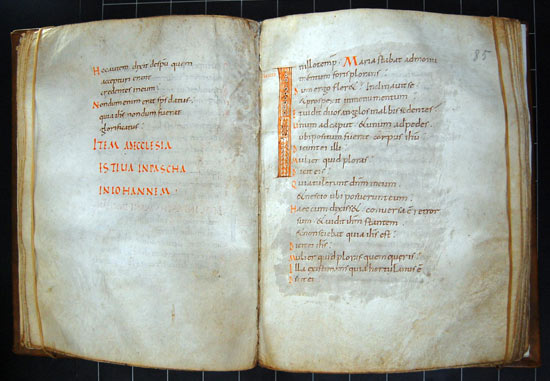 Hoc autem dixit despu quem
accepturi erant
credentes ineum.
Nondum enim erat sps datus,
quia ihs nondum fuerat
glorificatus.
ITEM AECCLESIA
INPASCHA
INIOHANNEM
85
Inillotemp. Maria stabat admoni
mentum foris plorans.
Dum ergo fler& Inclinauit se
& prospexit inmonumentum
Et uidit duos angelos inalbis sedentes
Unum adcaput & unum adpedes.
ubi positum fuerat corpus ihu
Dicunt ei illi
Mulier quid ploras
Dicit eis
Quia tulerunt dnm meum
& nescio ubi posuerunt eum
Haec cum dixiss& conuersa e retror
sum & uidit ihm stantem
& nonsciebat quia ihs est.
Dicit ei ihs.
Mulier quid ploras quem queris
Illa existimans quia hortulanus e
Dicit ei